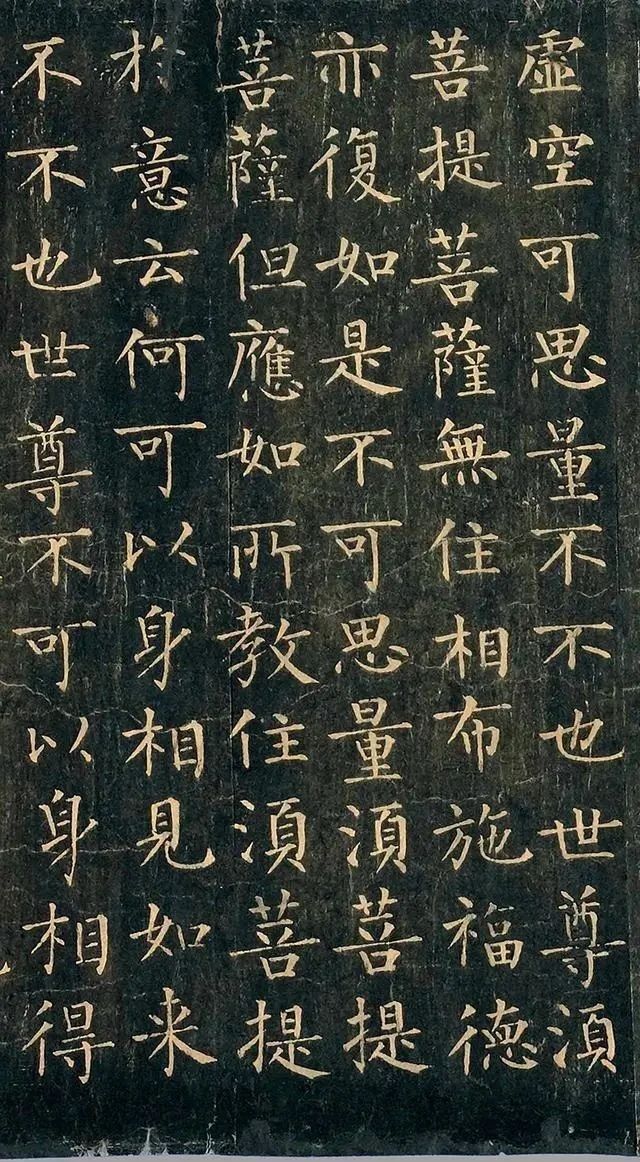 虛空可思量不不也世尊須
菩提菩薩無住相布施福德
亦復如是不可思量須菩提
菩薩但應如所教住須菩提
扵意云何可以身相見如来
不不也世尊不可以身相得